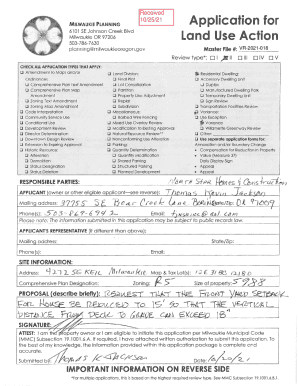 Received
10/25/21
MILWAUKIE PLANNING
6101 SE Johnson Creek Blvd
Milwaukie OR 97206
503-786-7630
planning@milwaukieoregon.gov
Application for
Land Use Action
Master File #: VR-2021-018
Review type*: I II III IV V
CHECK ALL APPLICATION TYPES THAT APPLY:
Amendment to Maps and/or
Comprehensive Plan Text Amendment
Comprehensive Plan Map
Amendment
Zoning Text Amendment
Zoning Map Amendment
Code Interpretation
Community Service Use
Conditional Use
Development Review
Director Determination
Downtown Design Review
Extension to Expiring Approval
Historic Resource:
Alteration
Demolition
Status Designation
Status Deletion
Land Division:
Final Plat
Lot Consolidation
Partition
Property Line Adjustment
Replat
Subdivision
Mixed Use Overlay Review
Modification to Existing Approval
Natural Resource Review**
Nonconforming Use Alteration
Parking:
Quantity Determination
Quantity Modification
Shared Parking
Structured Parking
Planned Development
Residential Dwelling:
Accessory Dwelling Unit
Duplex
Manufactured Dwelling Park
Temporary Dwelling Unit
Sign Review
Transportation Facilities Review
Variance:
Use Exception
Variance
Willamette Greenway Review
Other:
Use separate application forms for:
Annexation and/or Boundary Change
Compensation for Reduction in Property
Value (Measure 37)
Daily Display Sign
Appeal
RESPONSIBLE PARTIES:
APPLICANT (owner or other eligible applicant—see reverse): Thomas Kevin Jackson
Mailing address: 37755 SE Bear Creek Lane
Phone(s): 503-869-6942 Email:
Please note: The information submitted in this application may be subject to public records law.
APPLICANT'S REPRESENTATIVE (if different than above):
Mailing address: State/Zip:
Phone(s): Email:
SITE INFORMATION:
Address: Milwaukie Map & Tax Lot(s):
Comprehensive Plan Designation: Zoning: R5 Size of property: 5988
PROPOSAL (describe briefly): REQUEST THAT THE FRONT YARD SETBACK
FOR HOUSE BE REDUCED TO 15' SO THAT THE VERTICAL
DISTANCE FROM DECK TO GRADE CAN EXCEED 18"
SIGNATURE:
ATTEST: I am the property owner or I am eligible to initiate this application per Milwaukie Municipal Code
(MMC) Subsection 19.1001.6.A. If required, I have attached written authorization to submit this application. To
the best of my knowledge, the information provided within this application package is complete and
accurate.
Submitted by: Thomas K Jackson Date: 10/20/21
IMPORTANT INFORMATION ON REVERSE SIDE
*For multiple applications, this is based on the highest required review type. See MMC Subsection 19.1001.6.B.1.